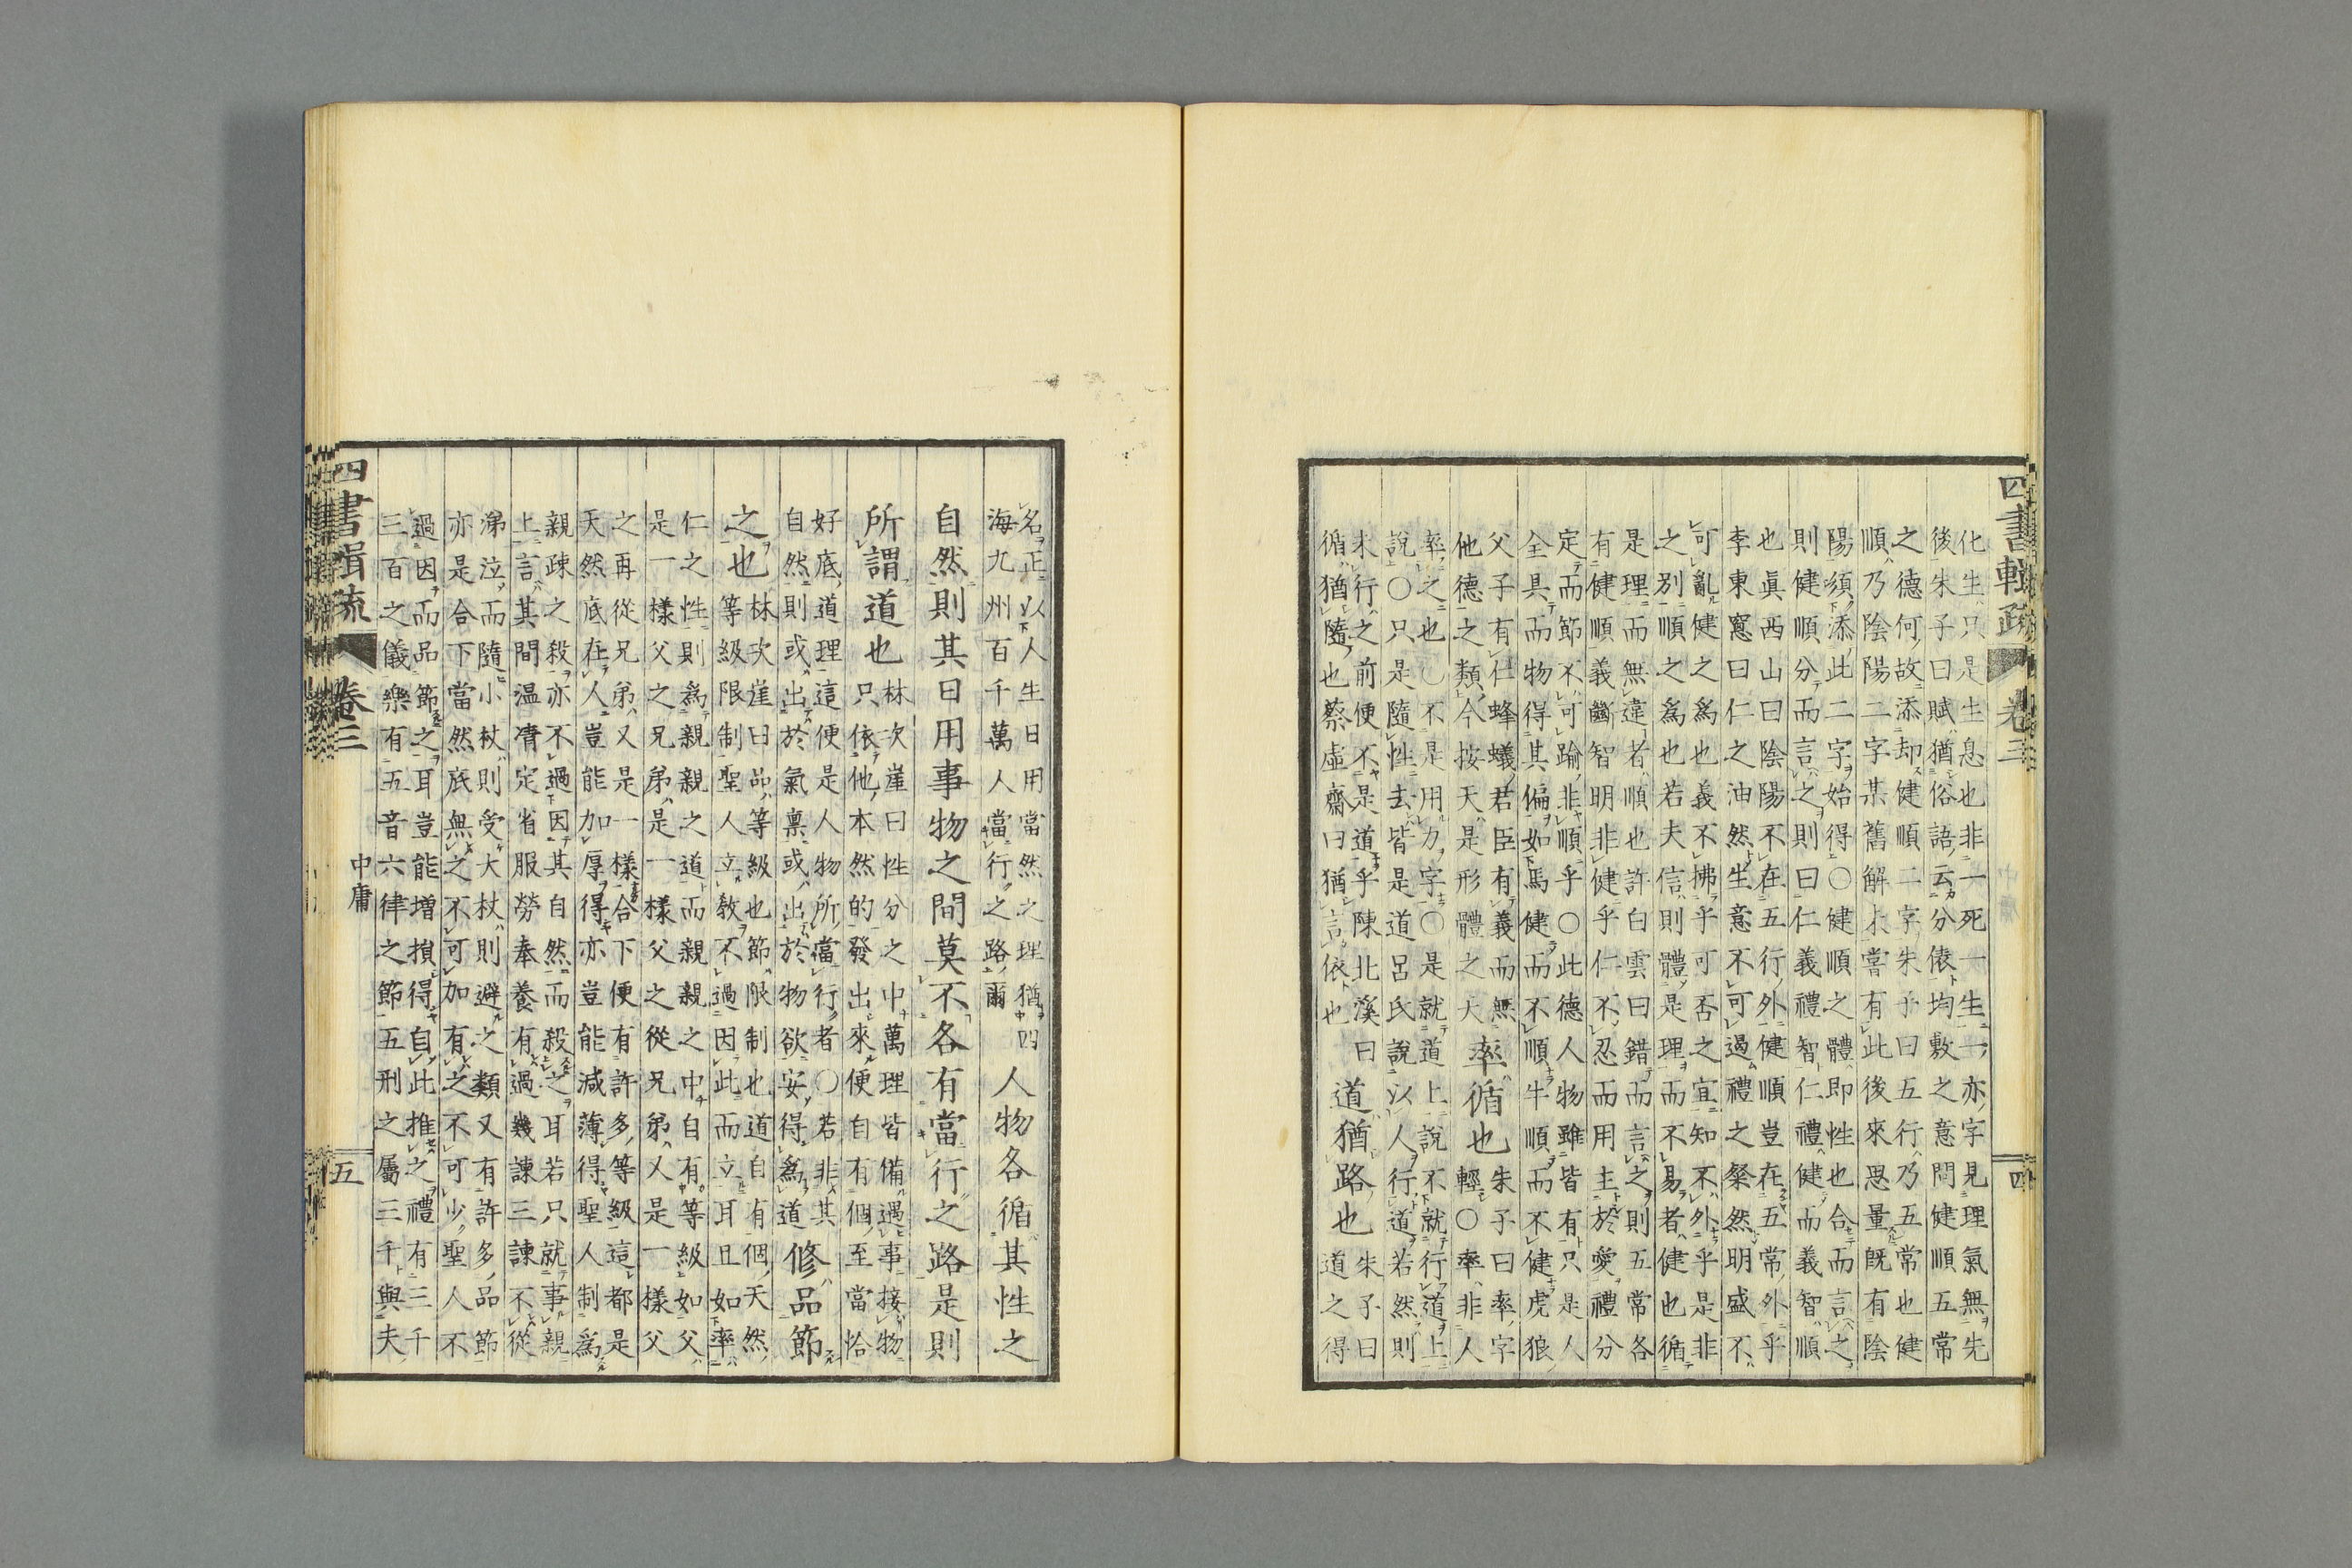 四書輯疏
卷三
四
化生只是生息也非一死一生一亦字見理氣無先
後朱子曰賦猶俗語云分俵均敷之意問健順五常
之德何故添却健順二字朱子曰五行乃五常也健
順乃陰陽二字某舊解未嘗有此後來思量既有陰
陽須添此二字始得〇健順之體即性也合而言之
則健順分而言之則曰仁義禮智仁禮健而義智順
也眞西山曰陰陽不在五行外健順豈在五常外乎
李東窻曰仁之油然生意不可過禮之粲然明盛不
可亂健之為也義不拂乎可否之宜知不外乎是非
之別順之為也若夫信則體是理而不易者健也循
是理而無違者順也許白雲曰錯而言之則五常各
有健順義斷智明非健乎仁不忍而用主於愛禮分
定而節不可踰非順乎〇此德人物雖皆有只是人
全具而物得其偏如馬健而不順牛順而不健虎狼
父子有仁蜂蟻君臣有義而無
他德之類今按天是形體之天
率循也
朱子曰率字
輕〇率非人
率之也〇不是用力字〇是就道上說不就行道上
說〇只是隨性去皆是道呂氏說以人行道若然則
未行之前便不是道乎陳北溪曰
循猶隨也蔡虛齋曰猶言依也
道猶路也
朱子曰
道之得
名正以人生日用當然之理猶四
海九州百千萬人當行之路爾
人物各循其性之
自然則其日用事物之間莫不各有當行之路是則
所謂道也
林次崖曰性分之中萬理皆備遇事接物
只依他本然的發出來便自有個至當恰
好底道理這便是人物所當行者〇若非其
自然則或出於氣禀或出於物欲安得為道
修品節
之也
林次崖曰品等級也節限制也道自有個天然
等級限制聖人立敎不過因此而立耳且如率
仁之性則為親親之道而親親之中自有等級如父
是一樣父之兄弟是一樣父之從兄弟又是一樣父
之再從兄弟又是一樣合下便有許多等級這都是
天然底在人豈能加厚得亦豈能減薄得聖人制為
親疎之殺亦不過因其自然而殺之耳若只就事親
上言其間温凊定省服勞奉養有過幾諫三諫不從
涕泣而隨小杖則受大杖則避之類又有許多品節
亦是合下當然底無之不可加有之不可少聖人不
過因而品節之耳豈能增損得自此推之禮有三千
三百之儀樂有五音六律之節五刑之屬三千與夫
四書輯疏
卷三
中庸
五